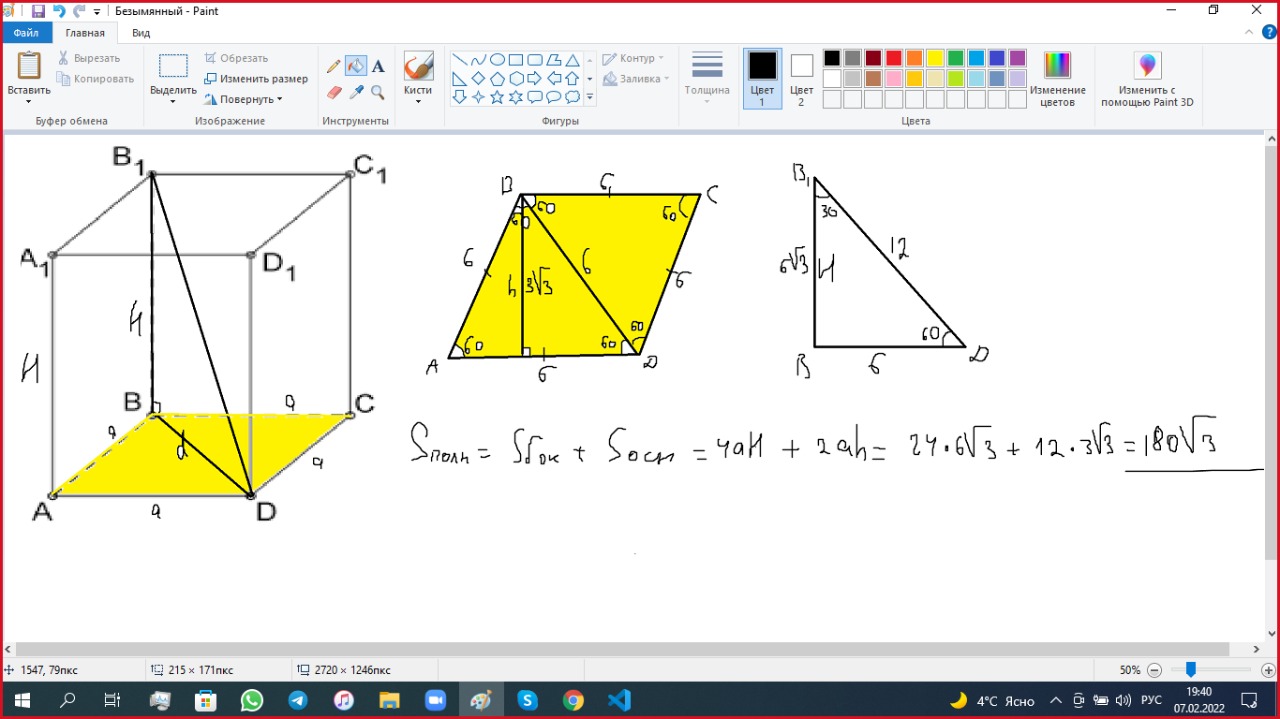 Безымянный - Paint
Файл Главная Вид
Вставить
Вырезать
Копировать
Буфер обмена
Выделить
Обрезать
Изменить размер
Повернуть
Изображение
A
Инструменты
Кисти
Фигуры
Контур
Заливка
Толщина
Цвет 1
Цвет 2
Изменение цветов
Цвета
Изменить с помощью Paint 3D
B1 C1
A1 D1
H
H
B C
a
a
d
a
A D
a
B 6 C
60
60
60
6
6
6
h 3√3
60
60
60
A 6 D
B1
30
12
6√3 H
60
B 6 D
Sполн = Sбок + Sосн = 4aH + 2ah = 24·6√3 + 12·3√3 = 180√3
1547, 79пкс 215 × 171пкс 2720 × 1246пкс 50%
4°C Ясно РУС 19:40
07.02.2022